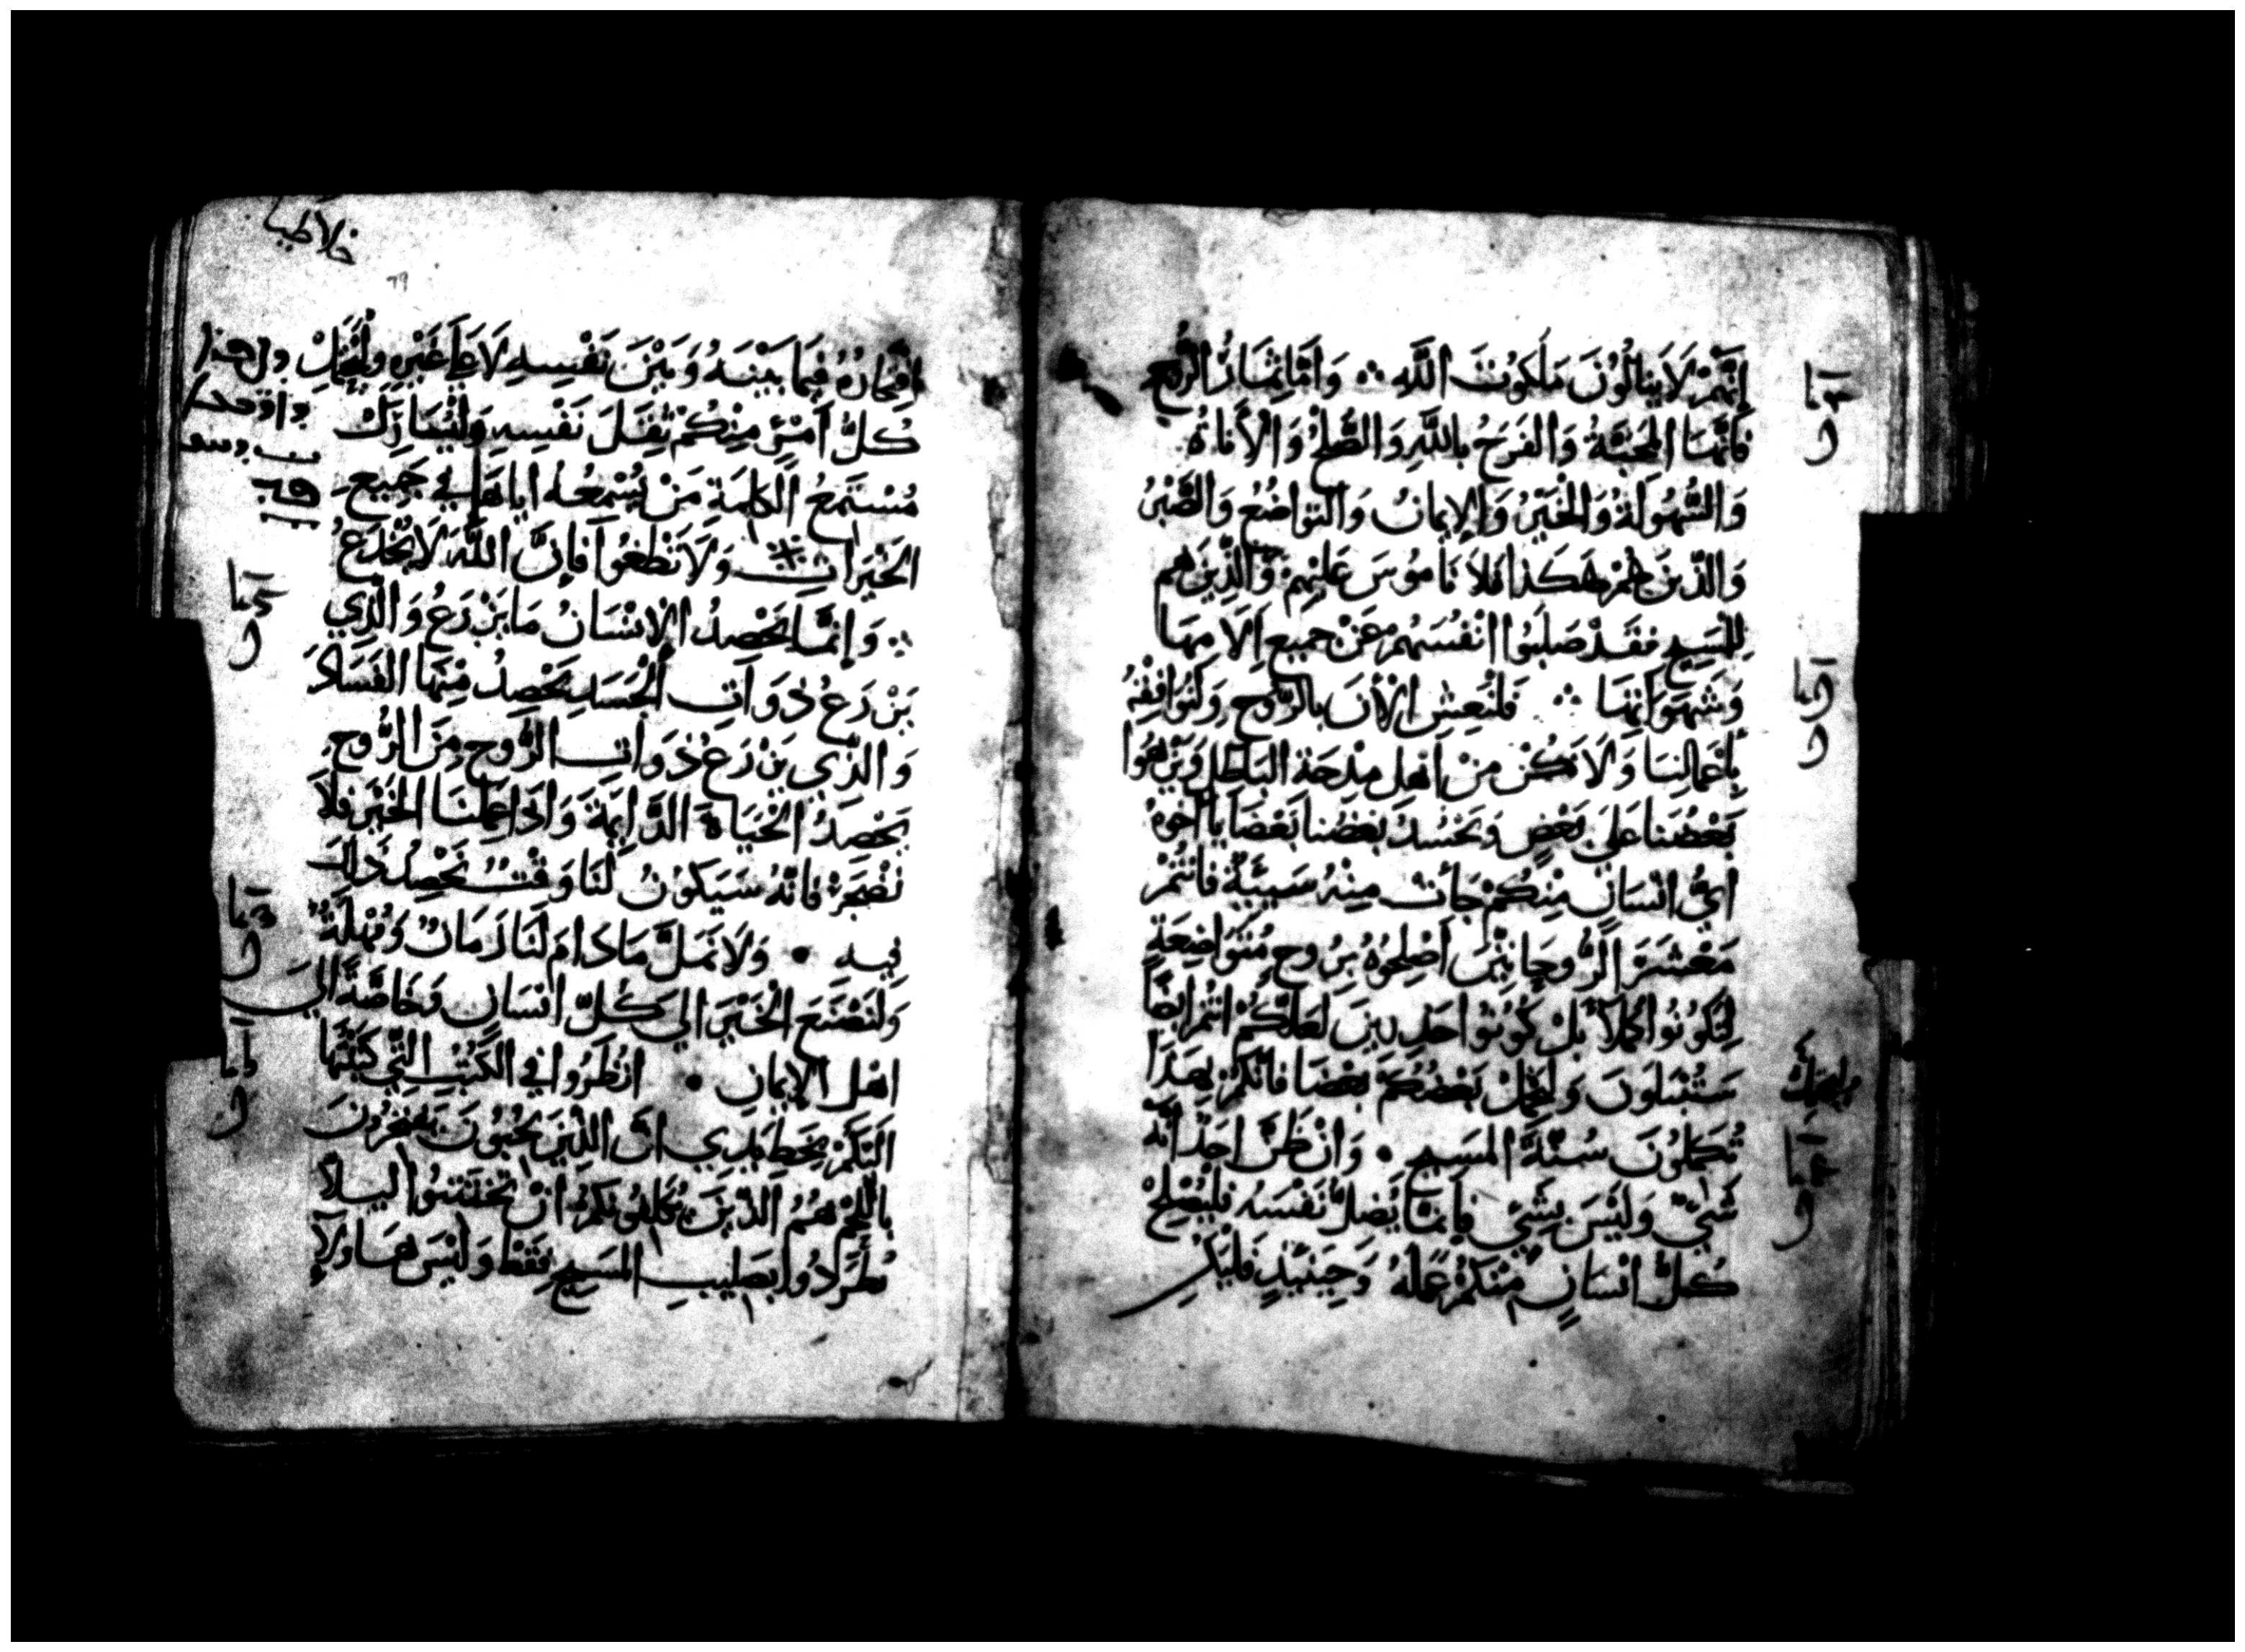 إِنَّهُمْ لَا يَنَالُونَ مَلَكُوتَ اللَّهِ ∴ وَأَمَّا ثِمَارُ الرُّوحِ
فَإِنَّهَا المَحَبَّةُ وَالفَرَحُ بِاللَّهِ وَالصُّلْحُ وَالأَنَاةُ
وَالسُّهُولَةُ وَالخَيْرُ وَالإِيمَانُ وَالتَوَاضُعُ وَالصَّبْرُ
وَالَّذِينَ هُمْ هَكَذَا فَلَا نَامُوسَ عَلَيْهِمْ وَالَّذِينَ هم
لِلْمَسِيحِ فَقَدْ صَلَبُوا أَنْفُسَهُمْ عَنْ جميع آلامها
وَشَهَوَاتِهَا ∴ فَلْنَعِشِ الْأَنَ بالرُّوحِ وَلْنُوَافِقْهُ
بِأَعْمَالِنَا وَلَا نَكُنْ مِنْ أَهْلِ مِدْحَةِ البَاطِلِ
بَعْضُنَا عَلَى بَعْضٍ وَيَحْسُدُ بَعْضُنَا بَعْضًا يَا أخوة
أَيُّ انْسَانٍ مِنْكُمْ جَأَتْ مِنْهُ سَيِّئَةٌ فَأَنْتُمْ
مَعْشَرَ الرُّوحَانِيِّينَ أَصْلِحُوهُ بِرُوحٍ مُتَوَاضِعَةٍ
بَلْ كُونُوا حَذِرِينَ لَعَلَّكُمْ انْتُمْ ايضًا
سَتُبْتَلَونَ وَلْيَحْمِلْ بَعْضُكُمْ بَعْضًا فَإِنَّكُمْ بِهَذَا
تُكَمِّلُونَ سُنَّةَ المَسِيحِ • وَانْ ظَنَّ احَدٌ انَّه
شَيْءٌ وَلَيْسَ بِشَيْءٍ فَإِنَّمَا يُضِلُّ نَفْسَهُ فَلْيُصْلِحْ
كُلُّ انْسَانٍ مِنْكُمْ عَمَلَهُ وَحِينَئِذٍ فَلْيَكُنْ
خلاطيا
٦٩
افْتِخَارُهُ فِيمَا بَيْنَهُ وَبَيْنَ نَفْسِهِ لَا عَلَى غَيْرِهِ وَلْيَحْمِلْ
كُلُّ أَمْرِئٍ مِنْكُمْ ثِقَلَ نَفْسِهِ وَلْيُشَارِكْ
مُسْتَمِعُ الكَلِمَةِ مَنْ يُسْمِعُهُ ايَاهَا فِي جَمِيعِ
الخَيْرَاتِ وَلَا تَطْغُوا فَإِنَّ اللَّهَ لَا يُخْدَعُ
∴ وَإِنَّمَا يَحْصِدُ الْإِنْسَانُ مَا يَزْرَعُ وَالَّذِي
يَزْرَعُ ذَوَاتِ الْجَسَدِ يَحْصِدُ مِنْهَا الفَسَادَ
وَالَّذِي يَزْرَعُ ذَوَاتِ الرُّوحِ مِنَ الرُّوحِ
يَحْصِدُ الْحَيَاةَ الدَّايِمَةَ وَاذَا عَمِلْنَا الخَيْرَ فَلَا
نَضْجَرْ فَانَّهُ سَيَكُونُ لَنَا وَقْتٌ نَحْصِدُ ذَلِكَ
فِيهِ • وَلَا نَمَلَّ مَا دَامَ لَنَا زَمَانٌ وَمُهْلَةٌ
وَلْنَصْنَعِ الْخَيْرَ الي كُلِّ انْسَانٍ وَخَاصَّةً الي
اهْلِ الإِيمَانِ • انْظُرُوا فِي الكُتُبِ الَّتِي كَتَبْتُهَا
الَيْكُمْ بِخَطِّ يَدِي انَّ الَّذِينَ يُحِبُّونَ يَفْخَرُونَ
بِاللَّحْمِ هُمُ الَّذِينَ يُكَلِّفُونَكُمْ انْ تَخْتَتِنُوا لِيَلَّا
يُطْرَدُوا بِصَلِيبِ المَسِيحِ فَقَطْ وَلَيْسَ هَاولَاءِ